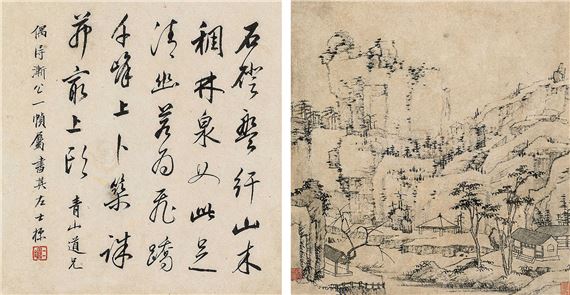 石磴盤紆山木
稠林泉如此足
清幽若為飛蹻
千峰上卜築誅
茆最上頭 青山道兄
偶得漸公一幀屬書其左士標